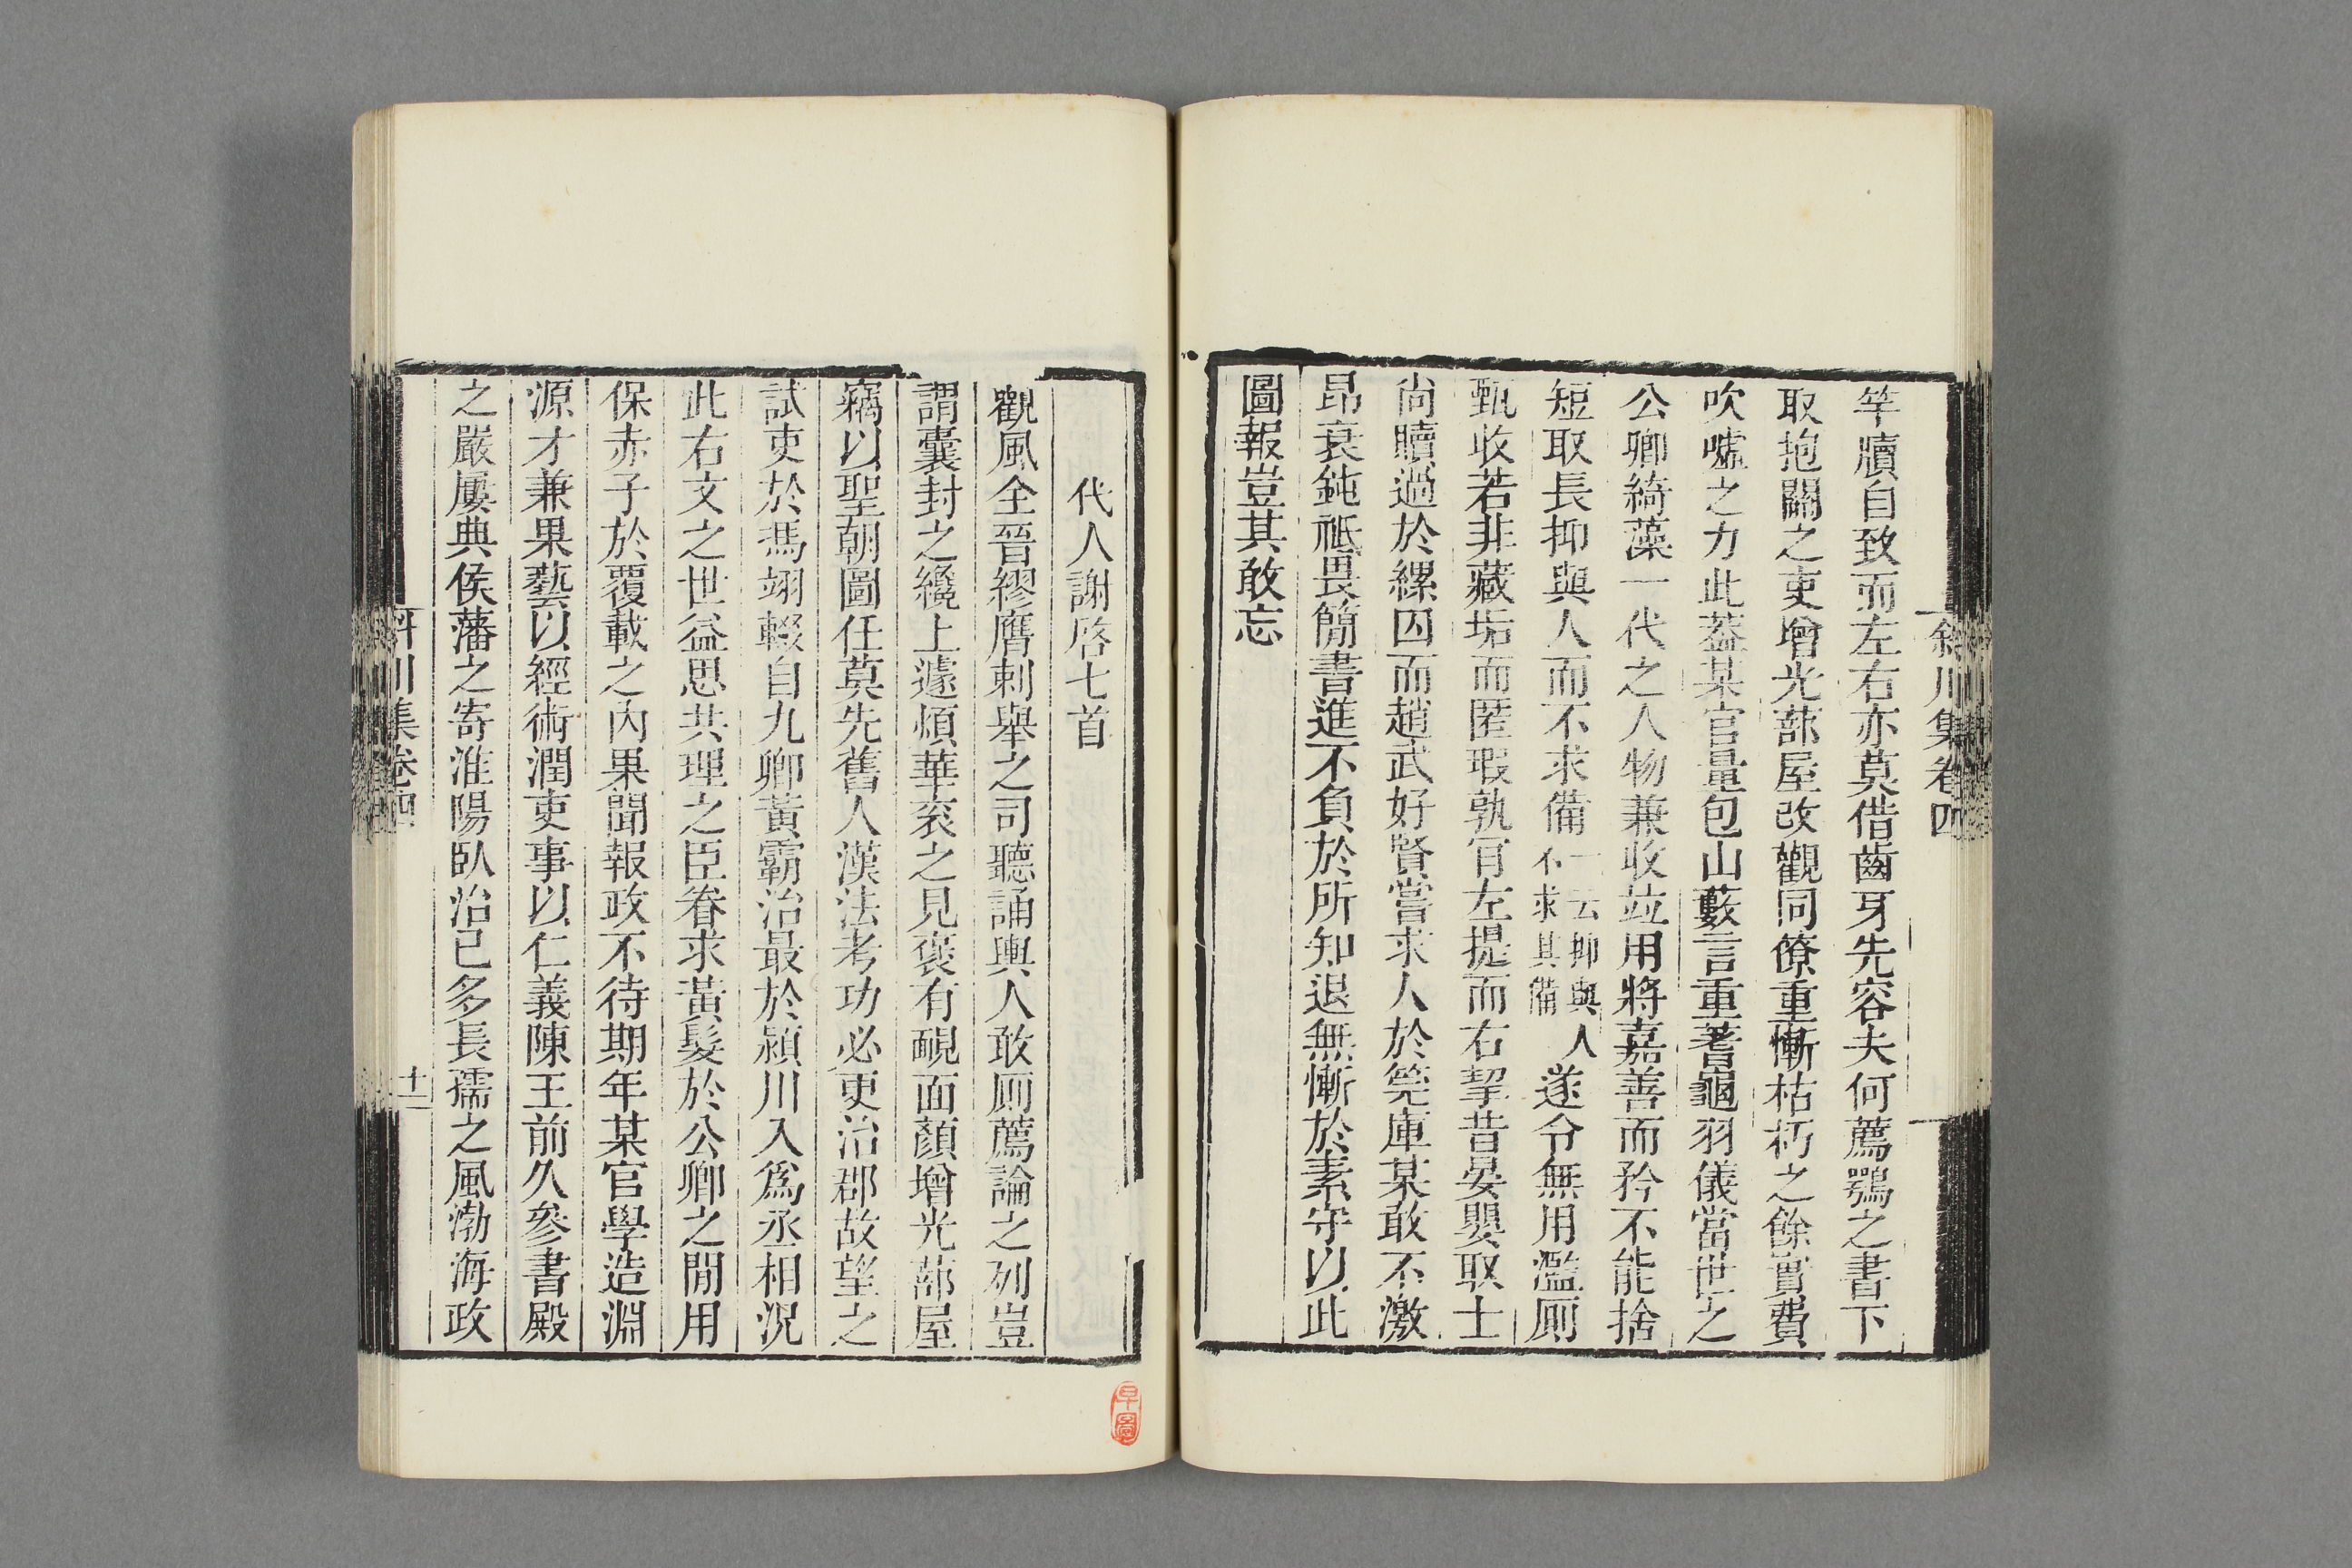 斜川集卷四
竿牘自致而左右亦莫借齒牙先容夫何薦鶚之書下
取抱關之吏增光蔀屋改觀同僚重慚枯朽之餘實費
吹噓之力此蓋某官量包山藪言重蓍龜羽儀當世之
公卿綺藻一代之人物兼收竝用將嘉善而矜不能捨
短取長抑與人而不求備一云抑與人不求其備遂令無用濫厠
甄收若非藏垢而匿瑕孰肎左提而右挈昔晏嬰取士
尚贖過於縲囚而趙武好賢嘗求人於筦庫某敢不激
昂衰鈍祗畏簡書進不負於所知退無慚於素守以此
圖報豈其敢忘
代人謝啓七首
觀風全晉繆膺刺舉之司聽誦輿人敢厠薦論之列豈
謂囊封之纔上遽煩華衮之見褒有靦面顏增光蔀屋
竊以聖朝圖任莫先舊人漢法考功必更治郡故望之
試吏於馮翊輟自九卿黃霸治最於潁川入爲丞相況
此右文之世益思共理之臣眷求黃髮於公卿之閒用
保赤子於覆載之內果聞報政不待期年某官學造淵
源才兼果藝以經術潤吏事以仁義陳王前久參書殿
之嚴屢典侯藩之寄淮陽臥治已多長孺之風渤海政
斜川集卷四
十二